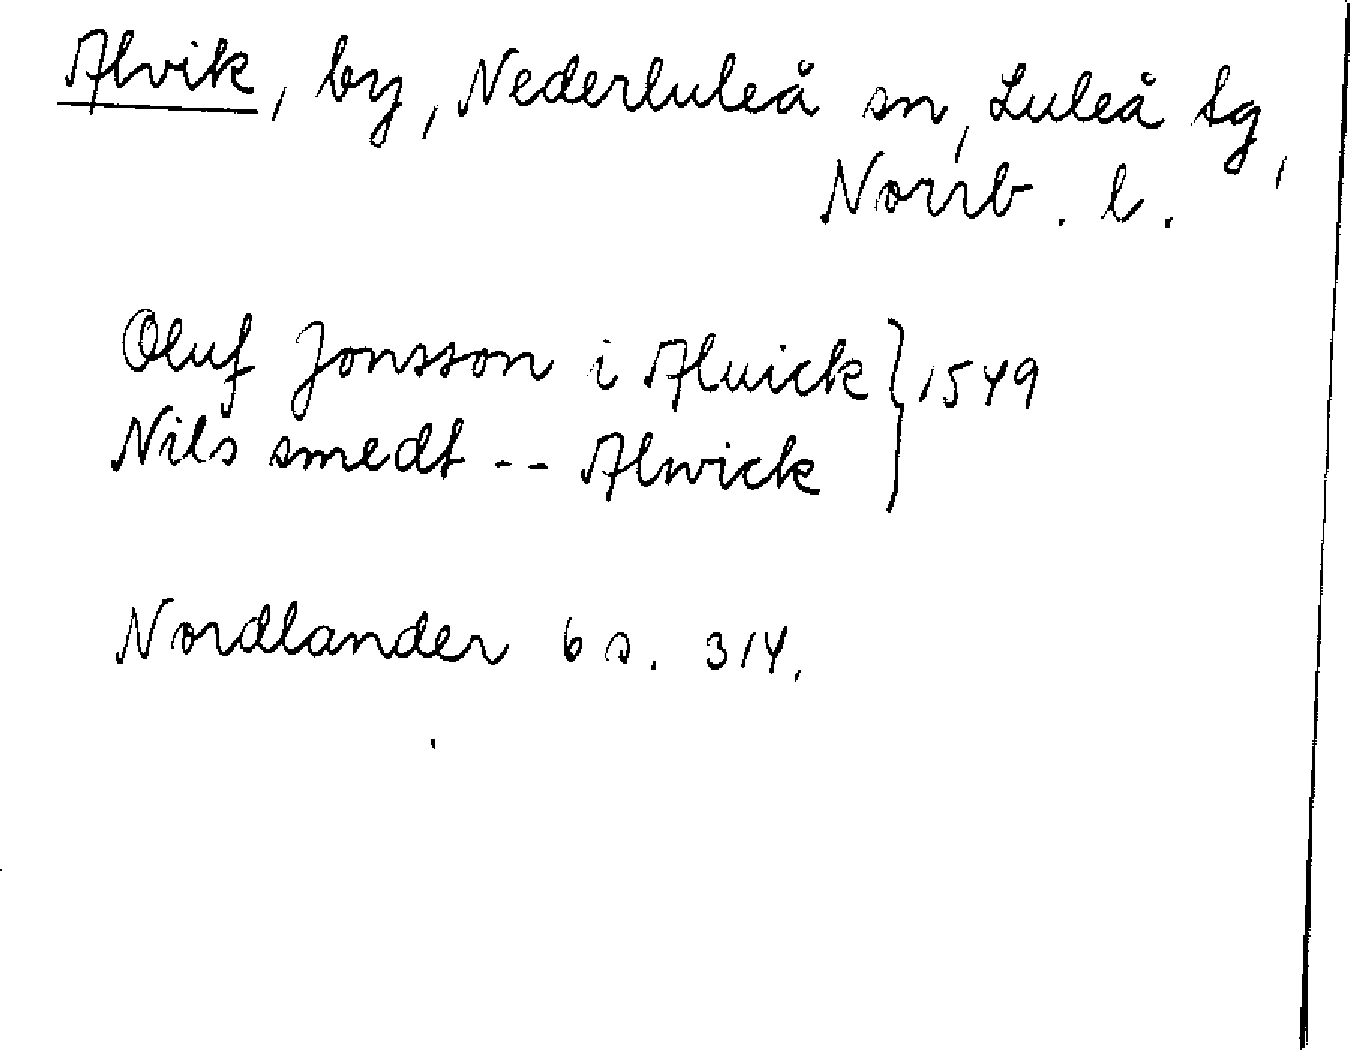 Alvik, by, Nederluleå sn, Luleå tg,
Norrb. l.
Oluf Jonsson i Aluick } 1549
Nils smedt -- Alwick
Nordlander 6 s. 314.